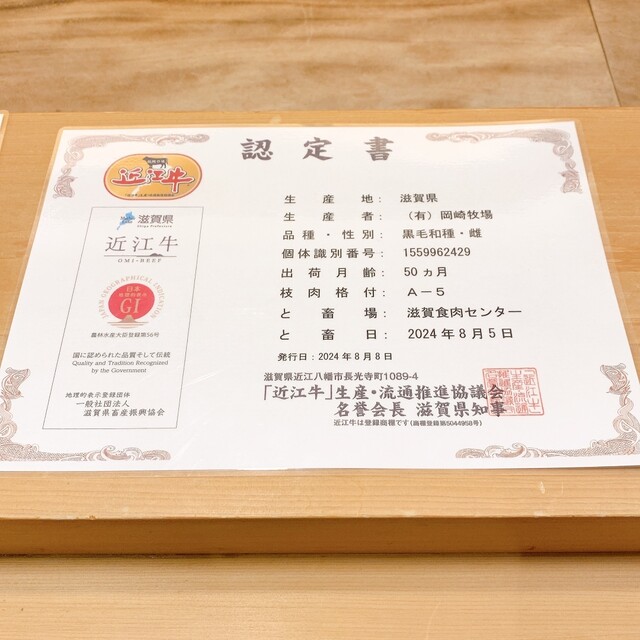 認定書
近江牛
滋賀県
Shiga Prefecture
近江牛
OMI-BEEF
JAPAN GEOGRAPHICAL INDICATION
日本
地理的表示
GI
農林水産大臣登録第56号
国に認められた品質そして伝統
Quality and Tradition Recognized
by the Government
地理的表示登録団体
一般社団法人
滋賀県畜産振興協会
生産地: 滋賀県
生産者: (有)岡崎牧場
品種・性別: 黒毛和種・雌
個体識別番号: 1559962429
出荷月齢: 50ヵ月
枝肉格付: A-5
と畜場: 滋賀食肉センター
と畜日: 2024年8月5日
発行日:2024年8月8日
滋賀県近江八幡市長光寺町1089-4
「近江牛」生産・流通推進協議会
名誉会長 滋賀県知事
近江牛は登録商標です(商標登録第5044958号)